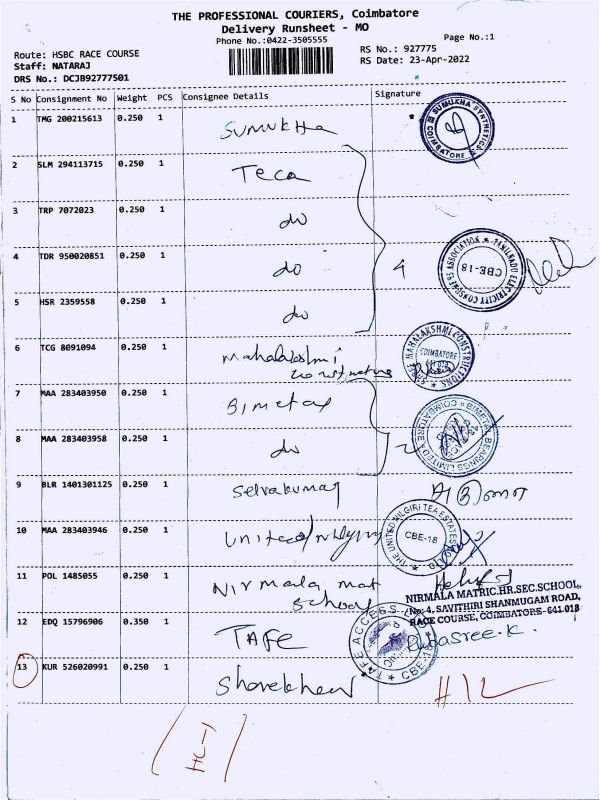 THE PROFESSIONAL COURIERS, Coimbatore
Delivery Runsheet - MO
Phone No.:0422-3505555
Page No.:1
Route: HSBC RACE COURSE
RS No.: 927775
Staff: NATARAJ
RS Date: 23-Apr-2022
DRS No.: DCJB92777501
S No Consignment No Weight PCS Consignee Details Signature
1 TMG 200215613 0.250 1 SUMUKHA
SUMUKHA SYNTHETICS COIMBATORE
2 SLM 294113715 0.250 1 Teca
3 TRP 7072023 0.250 1 do
4 TDR 950020851 0.250 1 do 4
TAMILNADU ELECTRICITY CONSUMERS ASSOCIATION CBE-18
5 HSR 2359558 0.250 1 do
6 TCG 8091094 0.250 1 Mahalakshmi
MAHALAKSHMI CONSTRUCTIONS COIMBATORE
7 MAA 283403950 0.250 1 Bimetal
8 MAA 283403958 0.250 1 do 2
BIMETAL BEARINGS LIMITED COIMBATORE
9 BLR 1401301125 0.250 1 Selvakumar
10 MAA 283403946 0.250 1 United
THE UNITED NILGIRI TEA ESTATES CBE-18
11 POL 1485055 0.250 1 Nirmala mat
school
NIRMALA MATRIC.HR.SEC.SCHOOL,
No: 4, SAVITHIRI SHANMUGAM ROAD,
RACE COURSE, COIMBATORE-641 018
12 EDQ 15796906 0.350 1 TAFE
TAFE ACCESS CBE-18
Rubasree.K.
13 KUR 526020991 0.250 1 Sharekhan